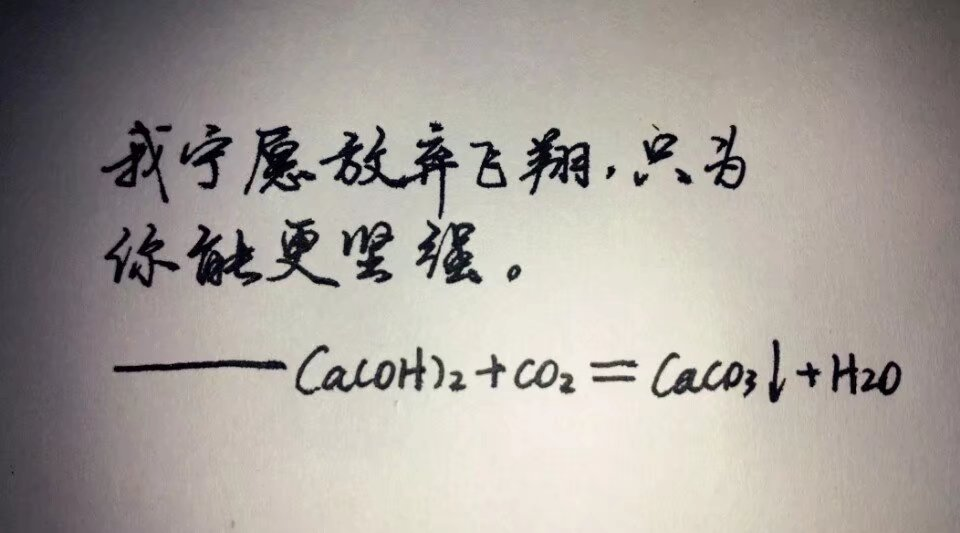 我宁愿放弃飞翔,只为
你能更坚强。
——Ca(OH)2+CO2=CaCO3↓+H2O